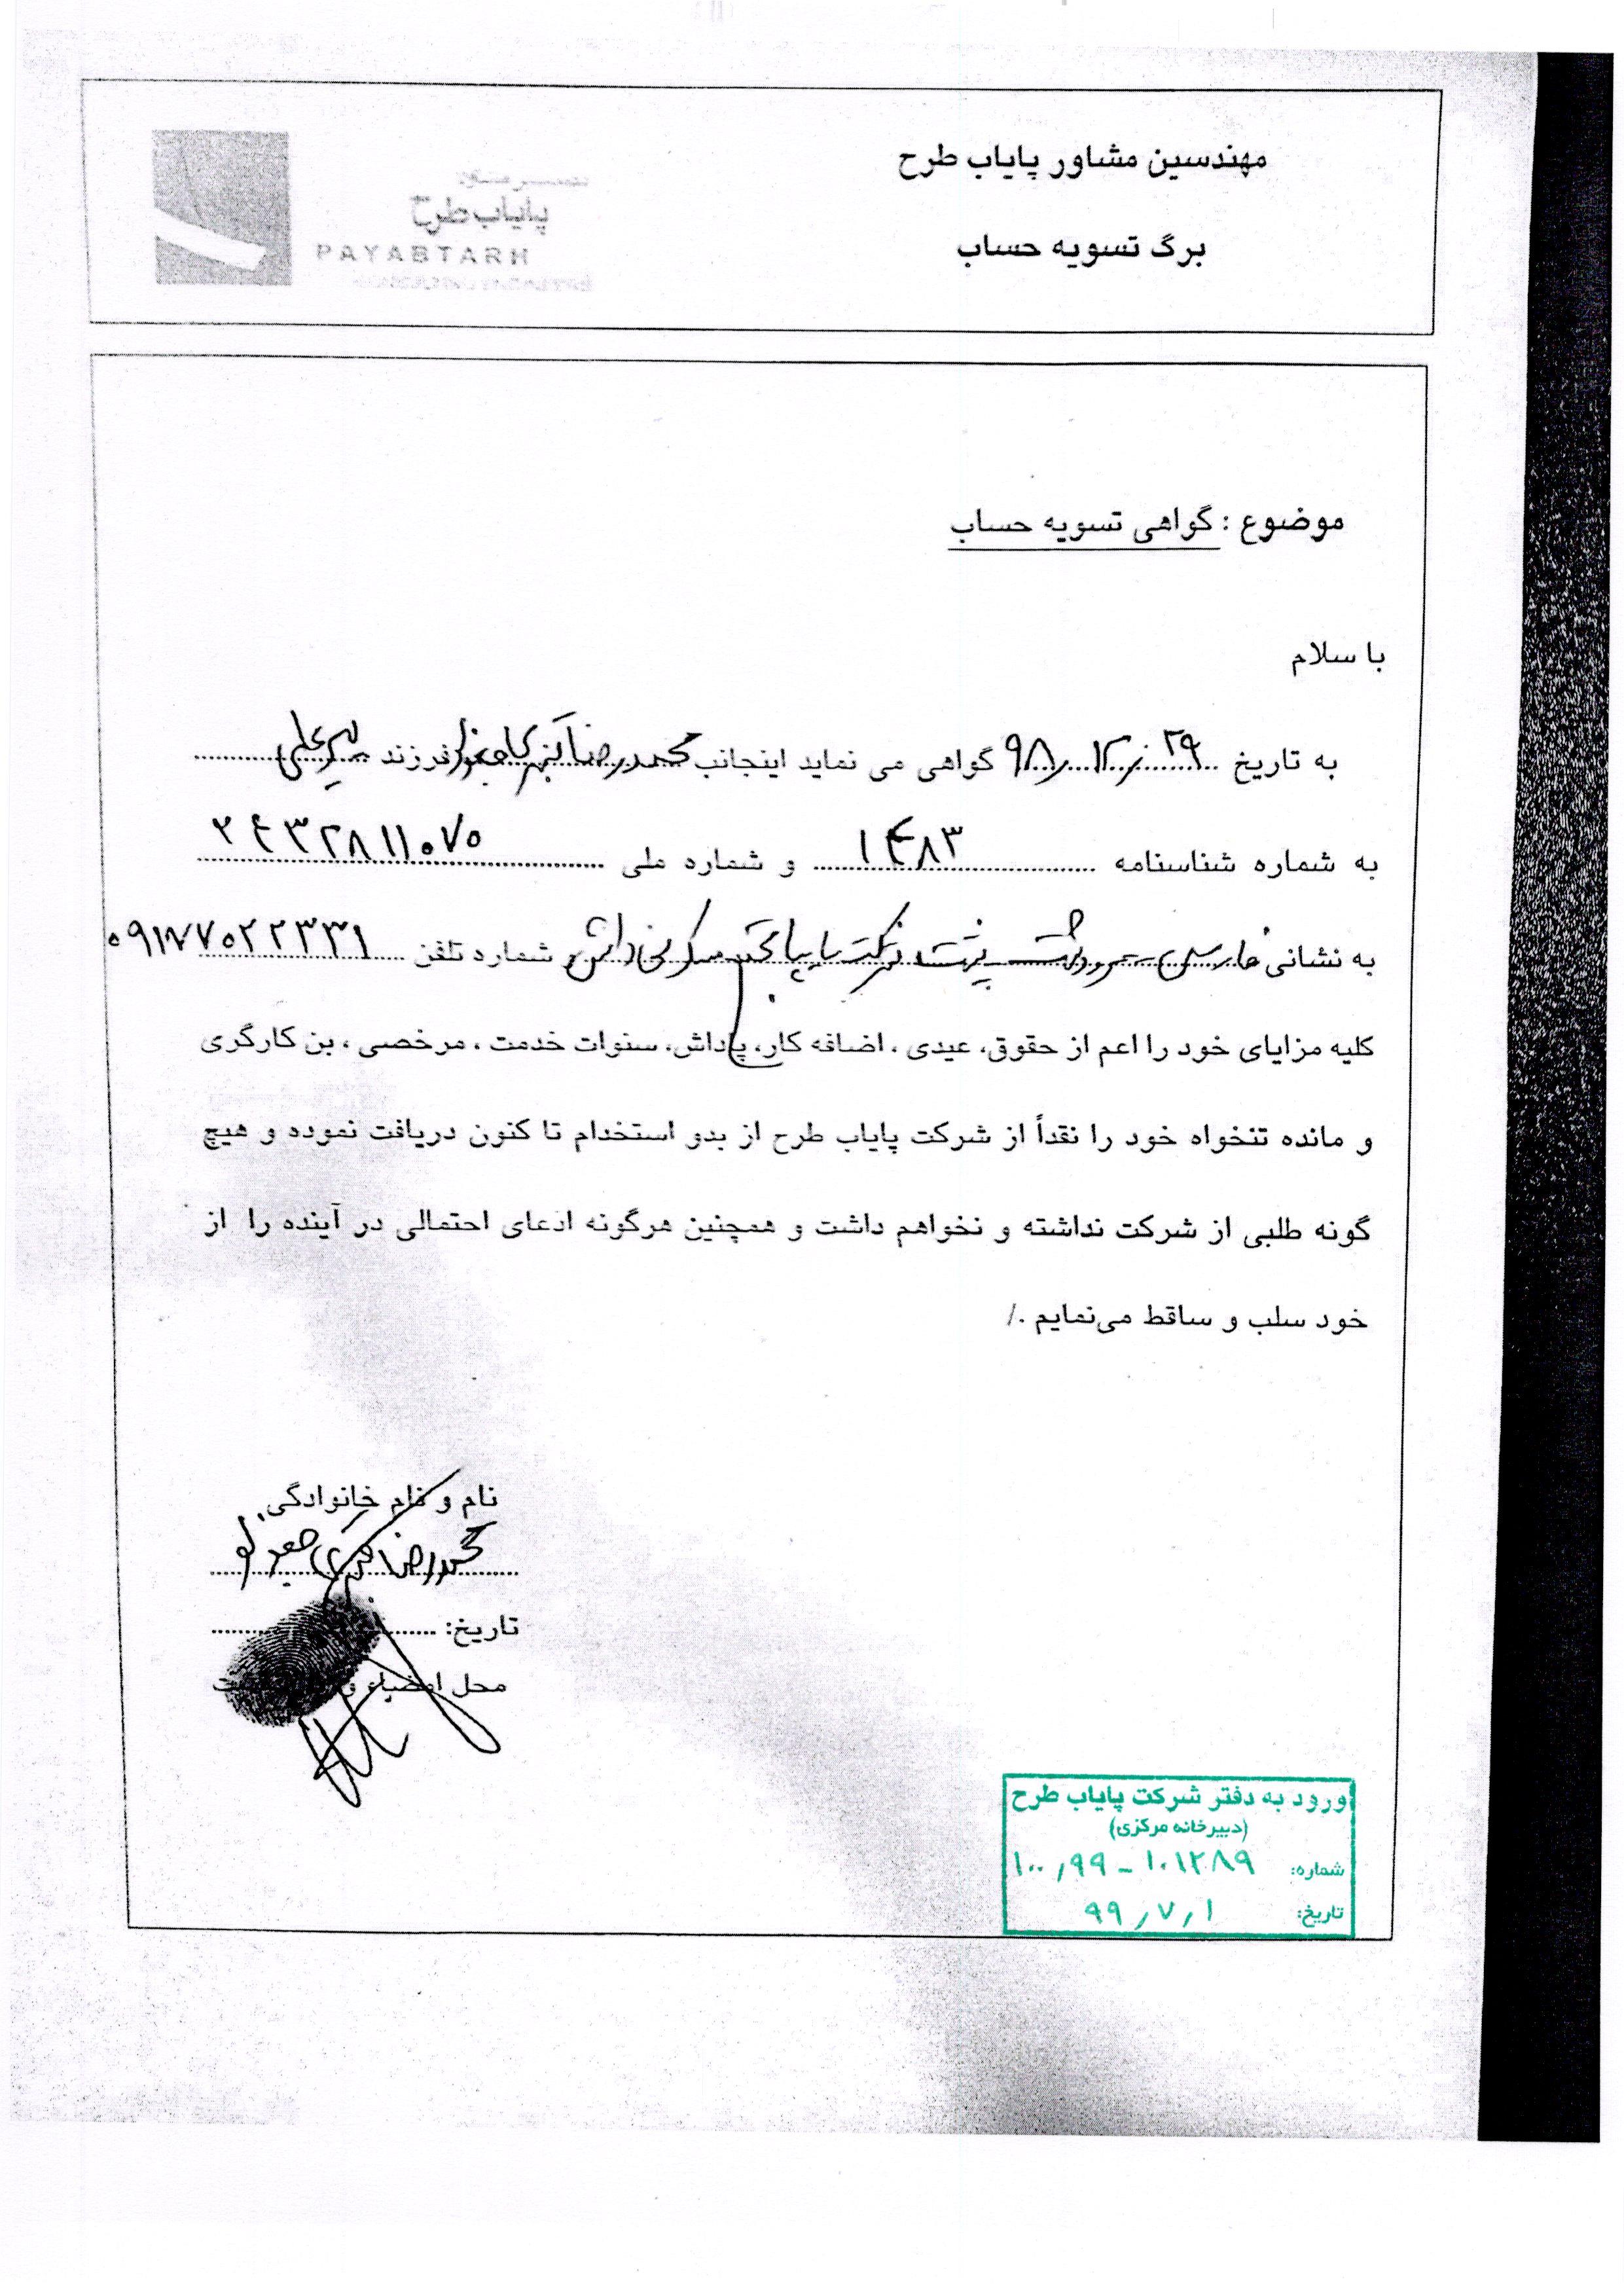 مهندسین مشاور پایاب طرح
برگ تسویه حساب
پایاب طرح
PAYABTARH
CONSULTING ENGINEERS
موضوع : گواهی تسویه حساب
با سلام
به تاریخ ۹۸/۱۲/۲۹ گواهی می نماید اینجانب محمدرضا فرزند
به شماره شناسنامه ۱۴۸۳ و شماره ملی ۲۴۳۲۸۱۱۰۷۵
به نشانی فارس مرودشت پشت شرکت شماره تلفن
کلیه مزایای خود را اعم از حقوق، عیدی ، اضافه کار، پاداش، سنوات خدمت ، مرخصی ، بن کارگری
و مانده تنخواه خود را نقداً از شرکت پایاب طرح از بدو استخدام تا کنون دریافت نموده و هیچ
گونه طلبی از شرکت نداشته و نخواهم داشت و همچنین هرگونه ادعای احتمالی در آینده را از
خود سلب و ساقط می‌نمایم ./
نام و نام خانوادگی
محمدرضا
تاریخ:
محل امضاء و
ورود به دفتر شرکت پایاب طرح
(دبیرخانه مرکزی)
شماره: ۱۰۰/۹۹ - ۱۰۱۲۸۹
تاریخ: ۹۹/۷/۱